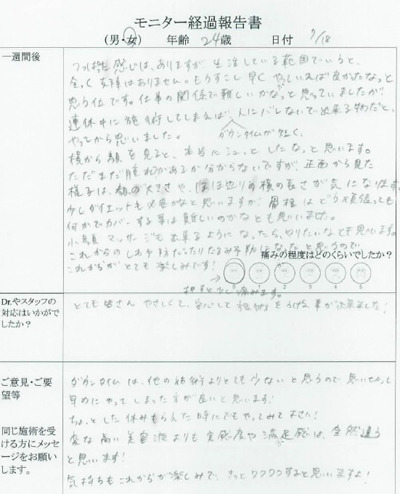 モニター経過報告書
(男・女) 年齢 24歳 日付 9/18
一週間後
つっぱり感じは、ありますが 生活している範囲でいうと、
全く 支障はありません。もう少し早く やっていれば良かったなっと
思う位です。仕事の関係で難しいかなっと 思っていましたが
連休中に施術してしまえば 人にバレないで出来る物だと、
やってから思いました。
ダウンタイムが短く、
横から顔を見ると、本当に したなっと思います。
ただまだ腫れがあるか分からないですが、正面から見た
様子は、顔の大きさや、横の長さが気になります。
少しダイエットも必要かなと思いますが、骨格は どう頑張っても
何かでカバーする事は難しいのかなとも思いました。
小顔マッサージも出来るようになったら、やりたいなとも思います。
これからの しわ予防だったりたるみ予防になったと思うので
これからがとても楽しみです!
痛みの程度はどのくらいでしたか?
0 1 2 3 4 5
押すと少し痛みます。
Dr.やスタッフの
対応はいかがで
したか?
とても皆さん やさしくて、安心して施術をうける事が出来ました!
ご意見・ご要
望等
同じ施術を受
ける方にメッセ
ージをお願い
します。
ダウンタイムは、他の施術よりとても少ないと思うので 思いきって
早めにやってしまった方が良いと思います!
ちょっとした休みもらえた時にでもやってみて下さい!
変な高い美容液よりも 実感度や満足感は、全然違う
と思います!
気持ちもこれからが楽しみで、きっとワクワクすると思いますよ!